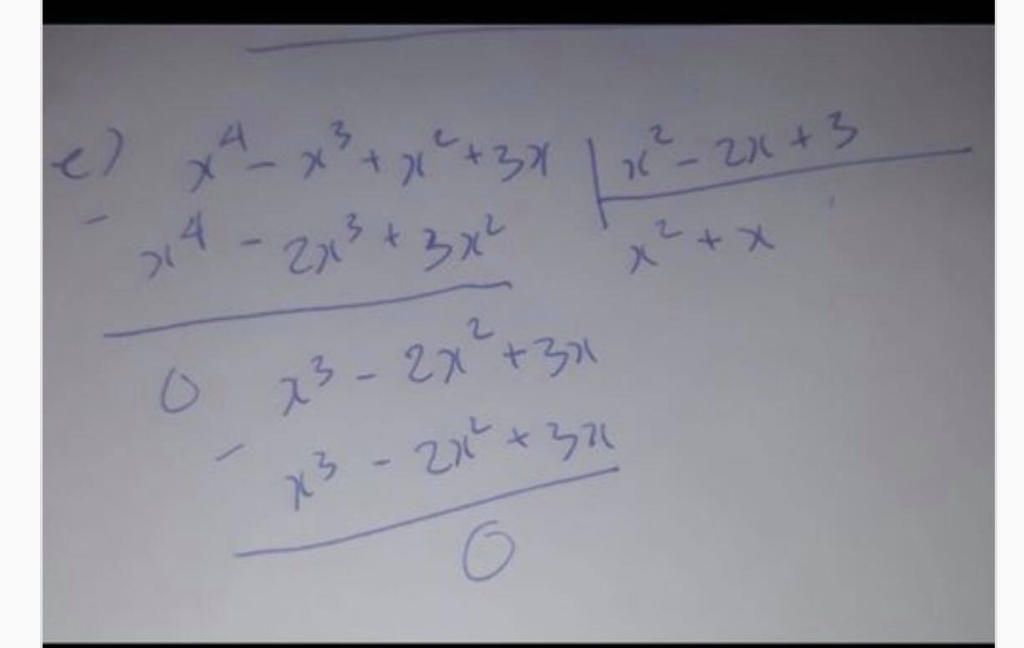 e) x⁴ - x³ + x² + 3x | x² - 2x + 3
- x⁴ - 2x³ + 3x² x² + x
0 x³ - 2x² + 3x
- x³ - 2x² + 3x
0